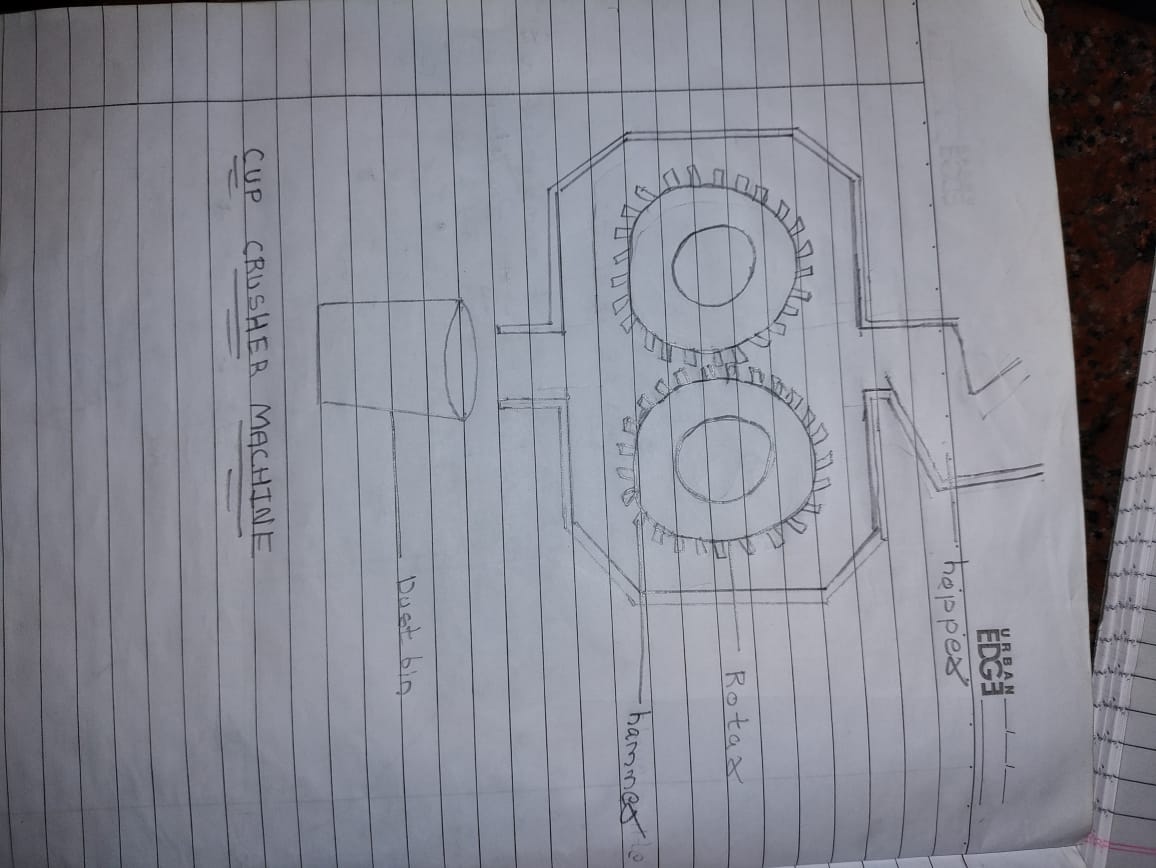 URBAN
EDGE
hopper
Rotar
hammer
Dust bin
CUP CRUSHER MACHINE